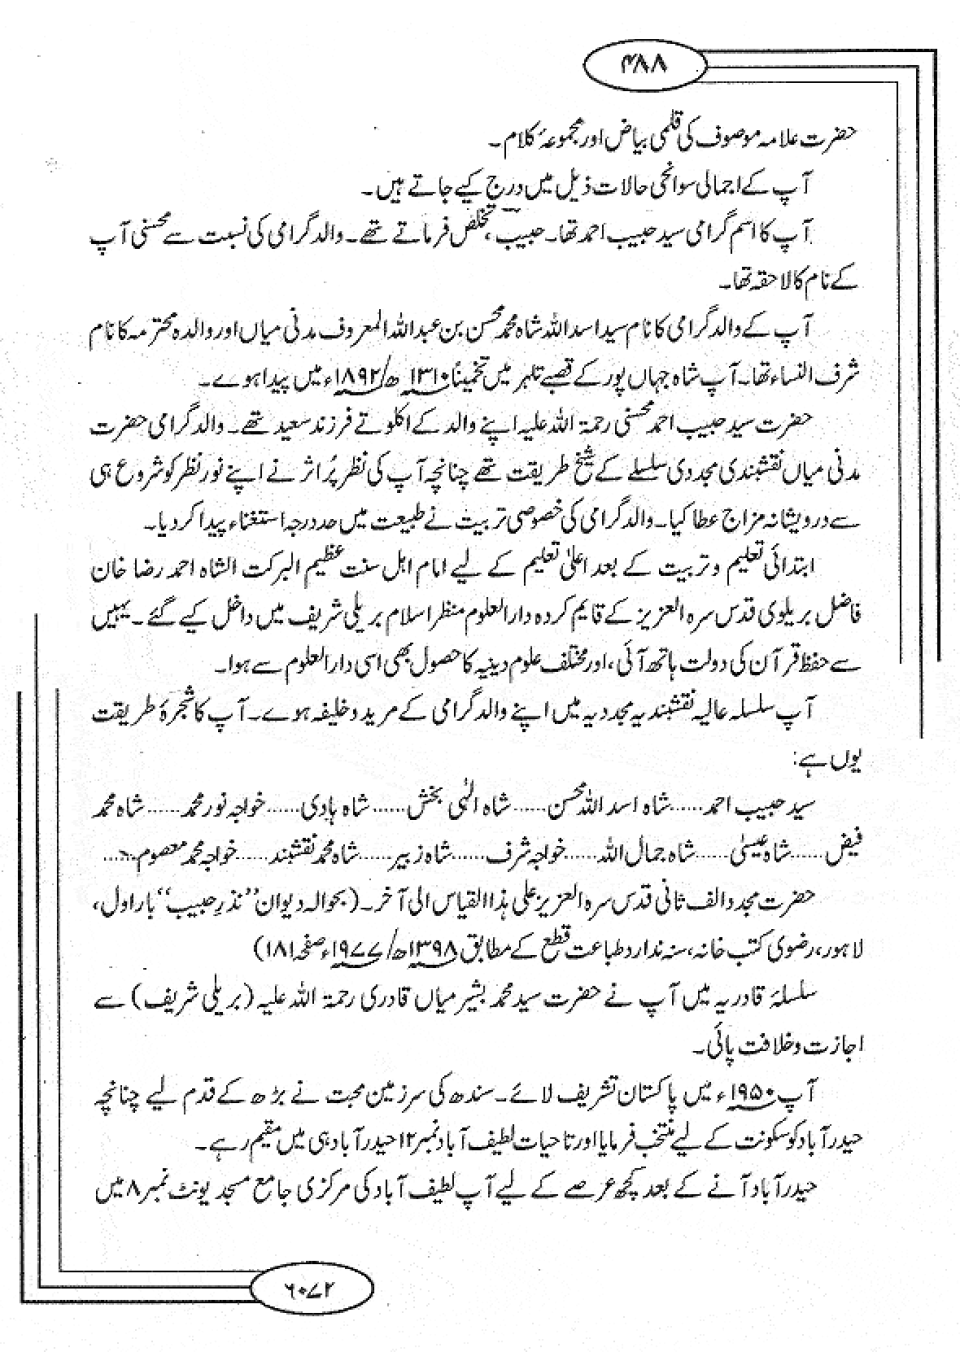 ۴۸۸
حضرت علامہ موصوف کی قلمی بیاض اور مجموعۂ کلام۔
آپ کے اجمالی سوانحی حالات ذیل میں درج کیے جاتے ہیں۔
آپ کا اسم گرامی سید حبیب احمد تھا۔ حبیبؔ، تخلص فرماتے تھے۔ والد گرامی کی نسبت سے محسنی آپ
کے نام کا لاحقہ تھا۔
آپ کے والد گرامی کا نام سید اسد اللہ شاہ محمد محسن بن عبداللہ المعروف مدنی میاں اور والدہ محترمہ کا نام
شرف النساء تھا۔ آپ شاہ جہاں پور کے قصبے تلہر میں تخمیناً ۱۳۱۰ھ/۱۸۹۲ء میں پیدا ہوے۔
حضرت سید حبیب احمد محسنی رحمۃ اللہ علیہ اپنے والد کے اکلوتے فرزند سعید تھے۔ والد گرامی حضرت
مدنی میاں نقشبندی مجددی سلسلے کے شیخ طریقت تھے چنانچہ آپ کی نظر پُر اثر نے اپنے نور نظر کو شروع ہی
سے درویشانہ مزاج عطا کیا۔ والد گرامی کی خصوصی تربیت نے طبیعت میں حد درجہ استغناء پیدا کر دیا۔
ابتدائی تعلیم و تربیت کے بعد اعلیٰ تعلیم کے لیے امام اہل سنت عظیم البرکت الشاہ احمد رضا خان
فاضل بریلوی قدس سرہ العزیز کے قایم کردہ دارالعلوم منظر اسلام بریلی شریف میں داخل کیے گئے۔ یہیں
سے حفظ قرآن کی دولت ہاتھ آئی، اور مختلف علوم دینیہ کا حصول بھی اسی دارالعلوم سے ہوا۔
آپ سلسلہ عالیہ نقشبندیہ مجددیہ میں اپنے والد گرامی کے مرید و خلیفہ ہوے۔ آپ کا شجرۂ طریقت
یوں ہے:
سید حبیب احمد......شاہ اسد اللہ محسن......شاہ الٰہی بخش......شاہ ہادی......خواجہ نور محمد......شاہ محمد
فیض......شاہ عیسیٰ......شاہ جمال اللہ......خواجہ شرف......شاہ زبیر......شاہ محمد نقشبند......خواجہ محمد معصوم......
حضرت مجدد الف ثانی قدس سرہ العزیز علی ہذا القیاس الی آخر۔ (بحوالہ دیوان ”نذرِ حبیب“ بار اول،
لاہور، رضوی کتب خانہ، سنہ ندارد طباعت قطع کے مطابق ۱۳۹۸ھ/۱۹۷۷ء صفحہ ۱۸۱)
سلسلۂ قادریہ میں آپ نے حضرت سید محمد بشیر میاں قادری رحمۃ اللہ علیہ (بریلی شریف) سے
اجازت و خلافت پائی۔
آپ ۱۹۵۰ء میں پاکستان تشریف لائے۔ سندھ کی سرزمین محبت نے بڑھ کے قدم لیے چنانچہ
حیدرآباد کو سکونت کے لیے منتخب فرمایا اور تاحیات لطیف آباد نمبر ۱۲ حیدرآباد ہی میں مقیم رہے۔
حیدرآباد آنے کے بعد کچھ عرصے کے لیے آپ لطیف آباد کی مرکزی جامع مسجد یونٹ نمبر ۸ میں
۶۰۷۲